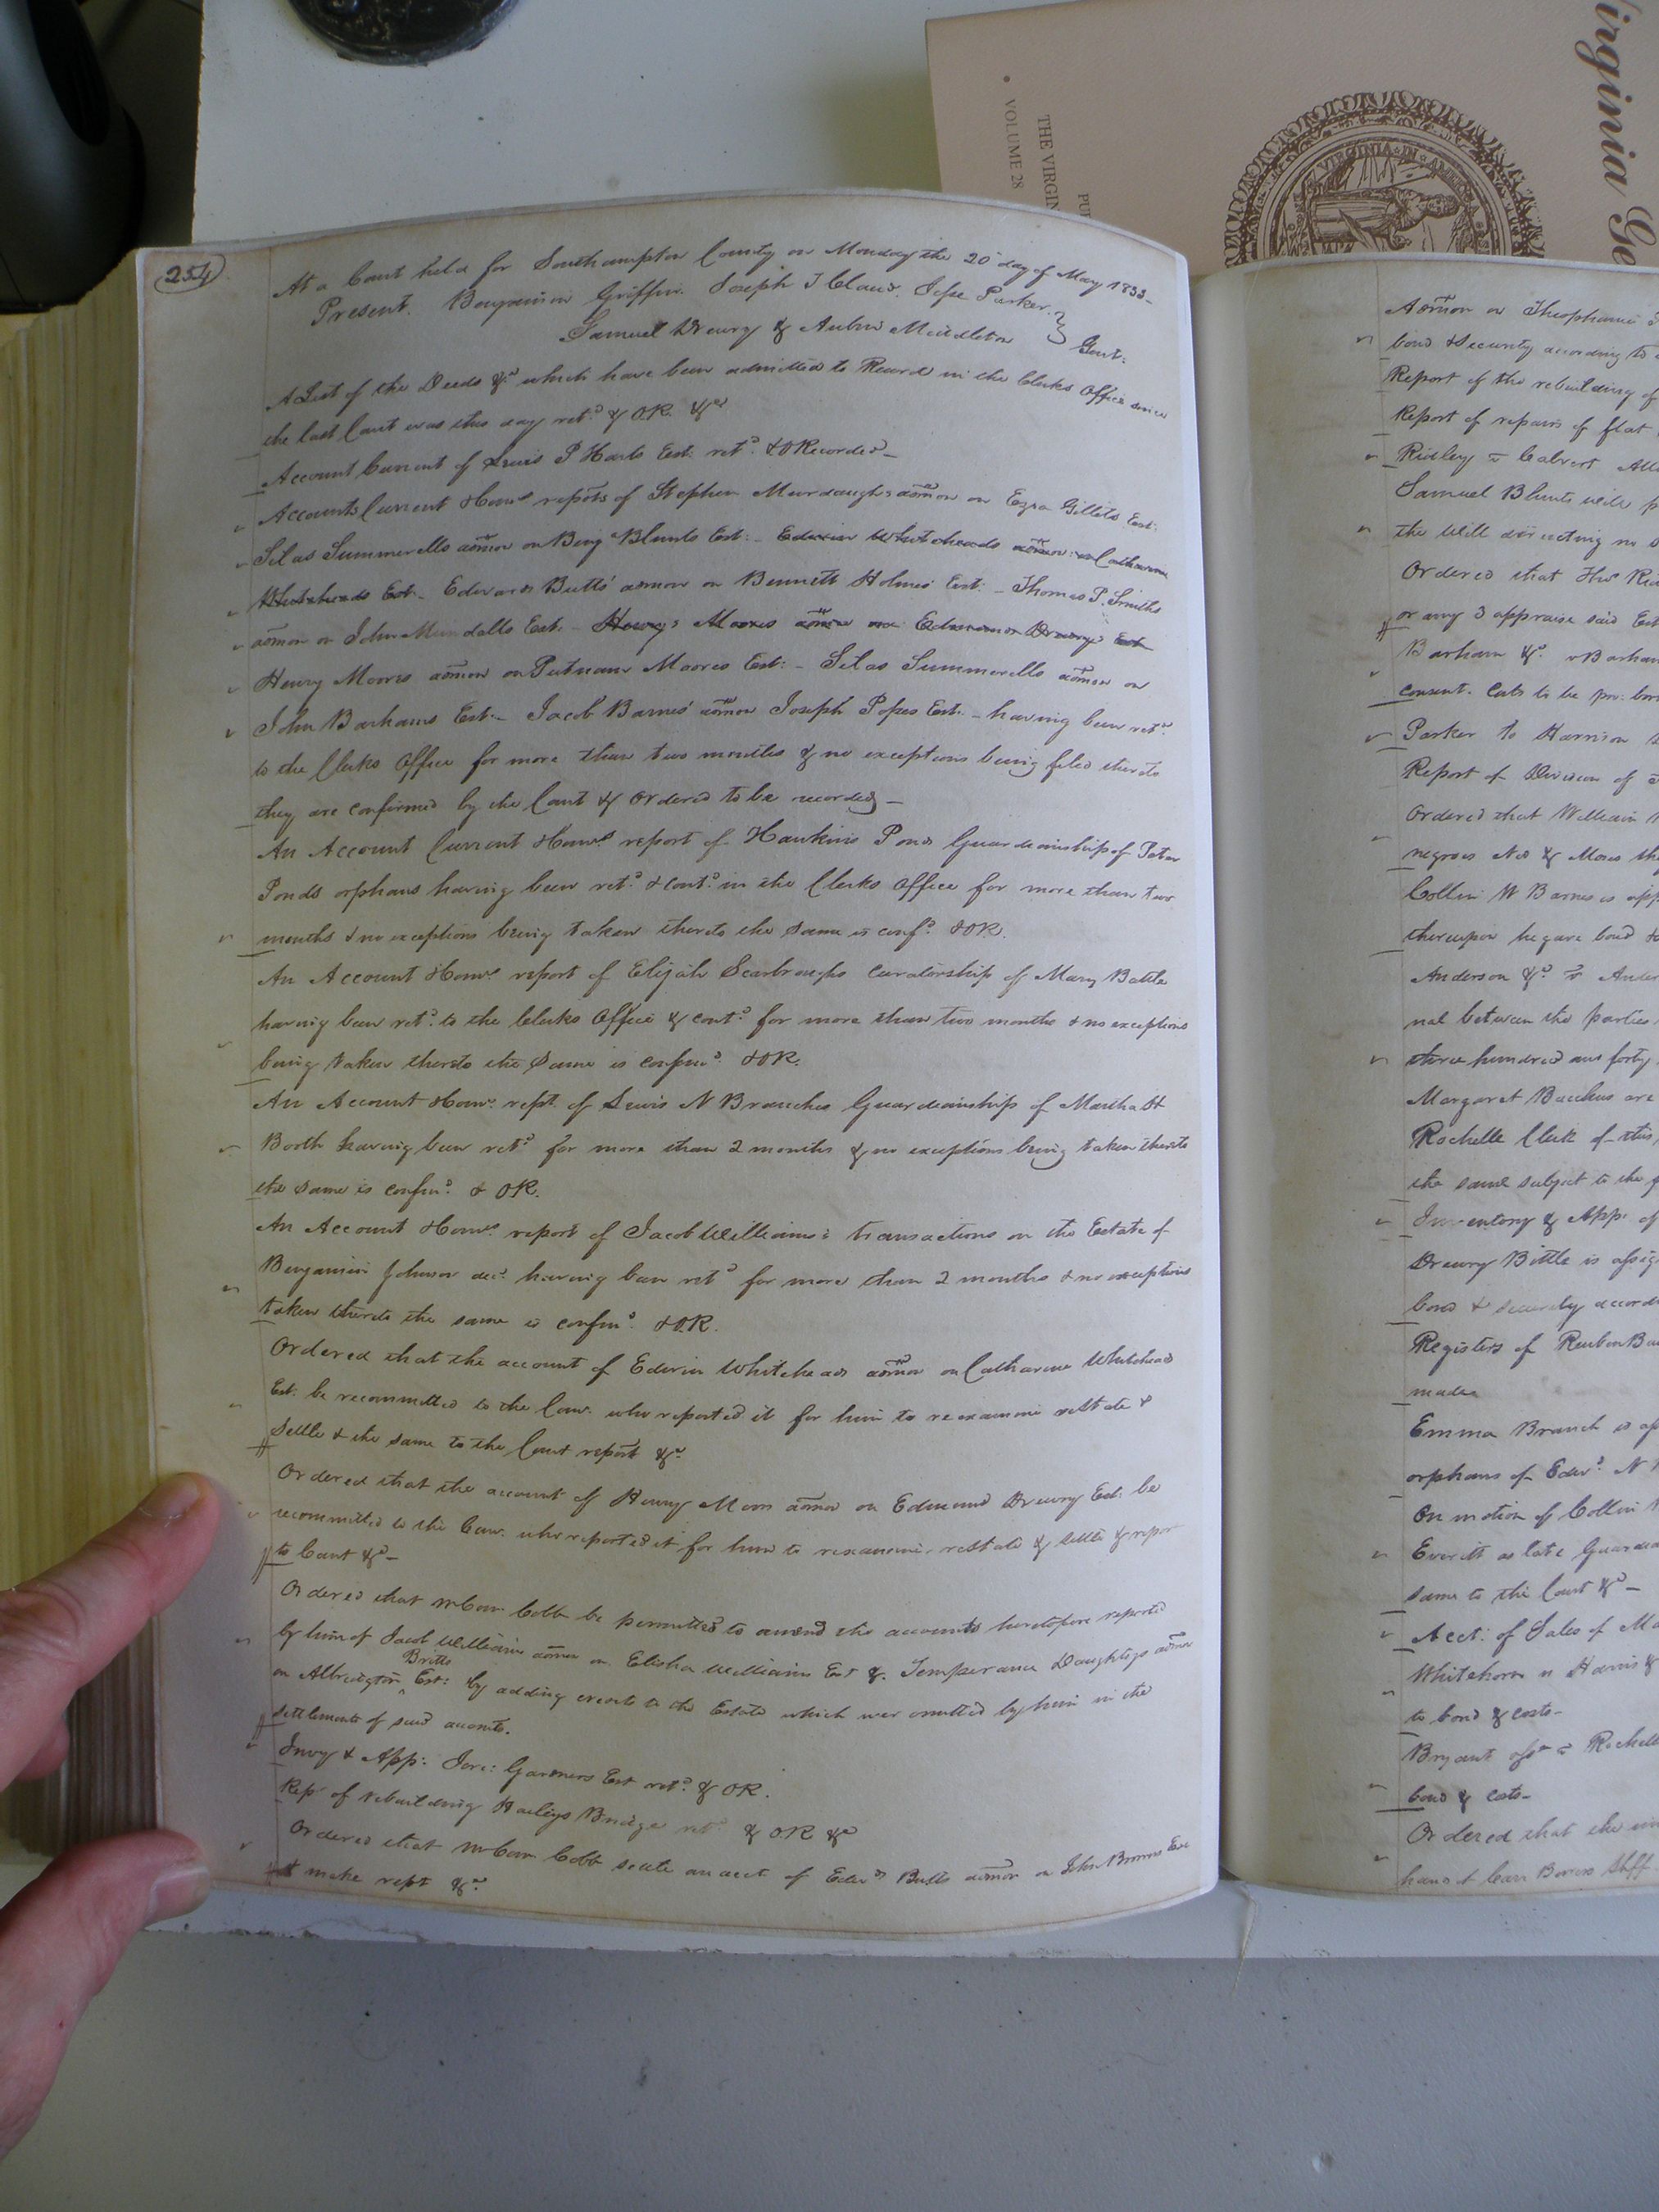 Virginia Ge
THE VIRGIN
• VOLUME 28
PU
VIRGINIA IN AMERI
254
At a Court held for Southampton County on Monday the 20th day of May 1833–
Present. Benjamin Griffin. Joseph T Claud. Jesse Parker.
Samuel Drewry & Middleton } Gent:
A List of the Deeds &c which have been admitted to Record in the Clerks Office since
the last Court was this day retd & OR. &c
Account Current of Lewis P Harts Est. retd & ORecorded–
Accounts Current & Coms reports of Stephen Murdaughs admon on Ezra Gilletts Est:
Silas Summerells admon on Benj Blunts Est: – Edwin Whiteheads admon on Catharine
Whiteheads Est. – Edward Butts' admon on Bennett Holmes' Est: – Thomas P. Smiths
admon on John Mundalls Est. – Henry Moores admon on Edmund Drewrys Est
Henry Moores admon on Putnam Moores Est: – Silas Summerells admon on
John Barhams Est. – Jacob Barnes' admon Joseph Popes Est. – having been retd
to the Clerks Office for more than two months & no exceptions being filed thereto
they are confirmed by the Court & Ordered to be recorded –
An Account Current & Coms report of Hawkins Ponds Guardianship of Peter
Ponds orphans having been retd & contd in the Clerks Office for more than two
months & no exceptions being taken thereto the same is confd & OR.
An Account & Coms report of Elijah Scarbroughs curatorship of Mary Battle
having been retd to the Clerks Office & contd for more than two months & no exceptions
being taken thereto the same is confmd & OR.
An Account & Coms rept of Lewis N Branches Guardianship of Martha H
Booth having been retd for more than 2 months & no exceptions being taken thereto
the same is confmd & OR.
An Account & Coms report of Jacob Williams's transactions on the Estate of
Benjamin Johnson decd having been retd for more than 2 months & no exceptions
taken thereto the same is confmd & OR.
Ordered that the account of Edwin Whitehead admon on Catharine Whitehead
Est: be recommitted to the Com. who reported it for him to reexamine restate &
settle & the same to the Court report &c
Ordered that the account of Henry Moore admon on Edmund Drewry Est: be
recommitted to the Com. who reported it for him to reexamine, restate & settle & report
to Court &c–
Ordered that Mr Com Cobb be permitted to amend the accounts heretofore reported
by him of Jacob Williams admon on Elisha Williams Est &. Temperance Daughtrys admon
on Albridgton Britts Est: by adding credits to the Estate which were omitted by him in the
settlements of said accounts.
Invy & App: Jere: Gardners Est retd & OR.
Rep of rebuilding Haileys Bridge retd & OR &c
Ordered that Mr Com Cobb settle an acct of Edwd Butts admon on John Browns Est
& make rept &c
Admon on Theophania
bond & security according to
Report of the rebuilding of
Report of repairs of flat
Ridley v Calvert
Samuel Blunts will
the Will directing no
Ordered that
or any 3 appraise said Est
Barham &c v Barham
consent. Costs to be
Parker to Harrison
Report of Division of
Ordered that William
negroes Ned & Moses
Collin W Barnes is app
thereupon he gave bond
Anderson &c v Ander
nal between the parties
three hundred and forty
Margaret Bacchus are
Rochelle Clerk of this
the same subject to the
Inventory & App: of
Drewry Bittle is assig
bond & security accord
Registers of Reuben
made
Emma Branch is ap
orphans of Edwd N
On motion of Collin
Everitt as late Guardia
same to the Court &c–
Acct: of Sales of
Whitehorn v Harris &
to bond & costs–
Bryant v Rochell
bond & costs–
Ordered that the